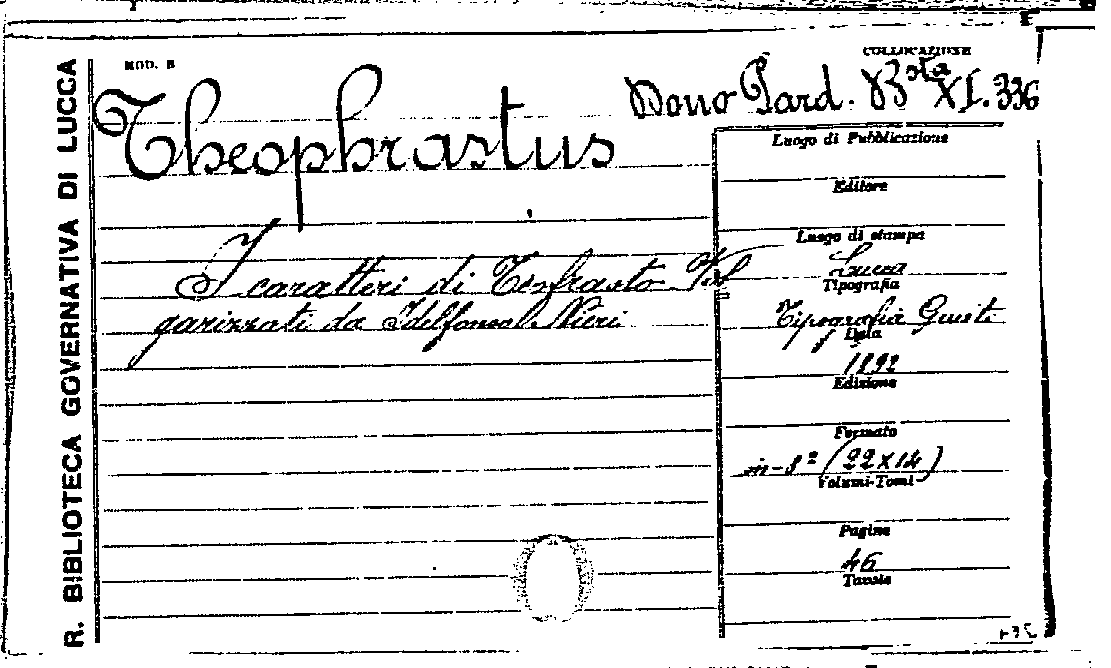 R. BIBLIOTECA GOVERNATIVA DI LUCCA
MOD. B
COLLOCAZIONE
Dono Pard. Bsta XI. 336
Theophrastus
I caratteri di Teofrasto Vol
garizzati da Idelfonso Nieri
Luogo di Pubblicazione
Editore
Luogo di stampa
Lucca
Tipografia
Tipografia Giusti
Data
1892
Edizione
Formato
in-8° (22 x 14)
Volumi-Tomi
Pagine
46
Tavole